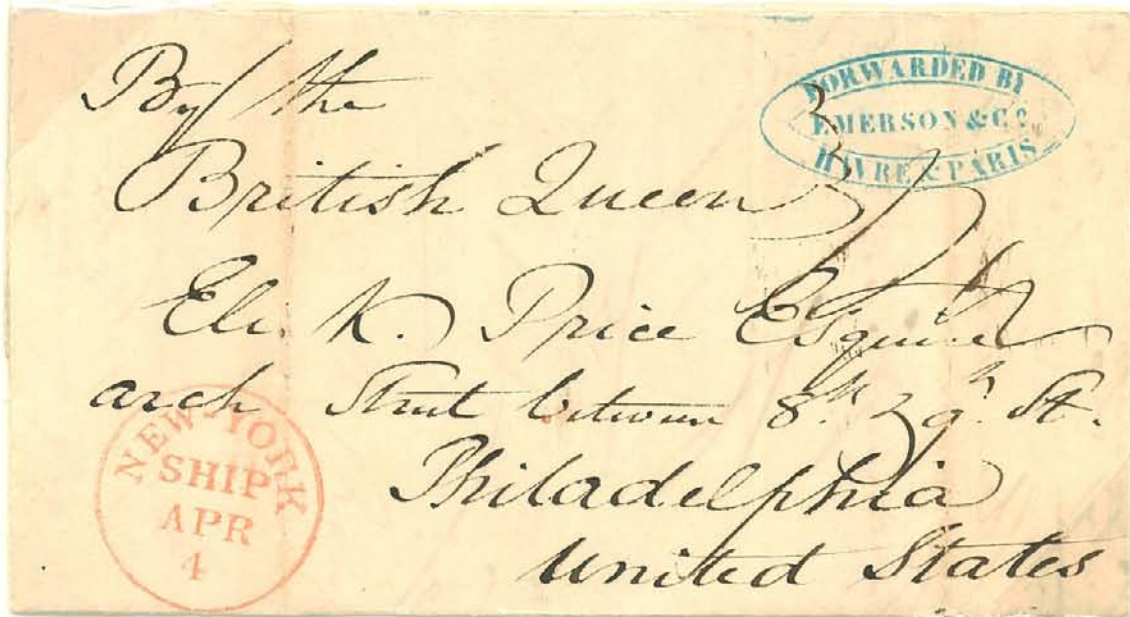 By the
British Queen
FORWARDED BY
EMERSON & Co
HAVRE & PARIS
Eli K. Price Esquire
arch Street between 8th & 9th St.
Philadelphia
United States
NEW-YORK
SHIP
APR
4